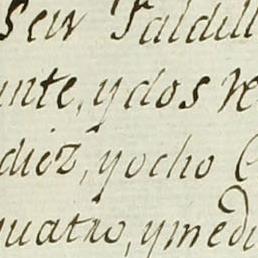 Seis Faldill
inte, y dos re
diez, y ocho
quatro, y medi